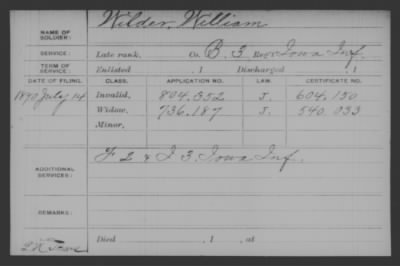 Wilder, William
NAME OF SOLDIER:
SERVICE: Late rank, Co. B. 3 Reg't Iowa Inf.
TERM OF SERVICE: Enlisted , 1 Discharged , 1
DATE OF FILING. CLASS. APPLICATION NO. LAW. CERTIFICATE NO.
1890 July 14 Invalid, 804.352 J. 604.150
Widow, 736.187 J. 540.033
Minor,
F 2 & I 3. Iowa Inf.
ADDITIONAL SERVICES:
REMARKS:
Died , 1 , at